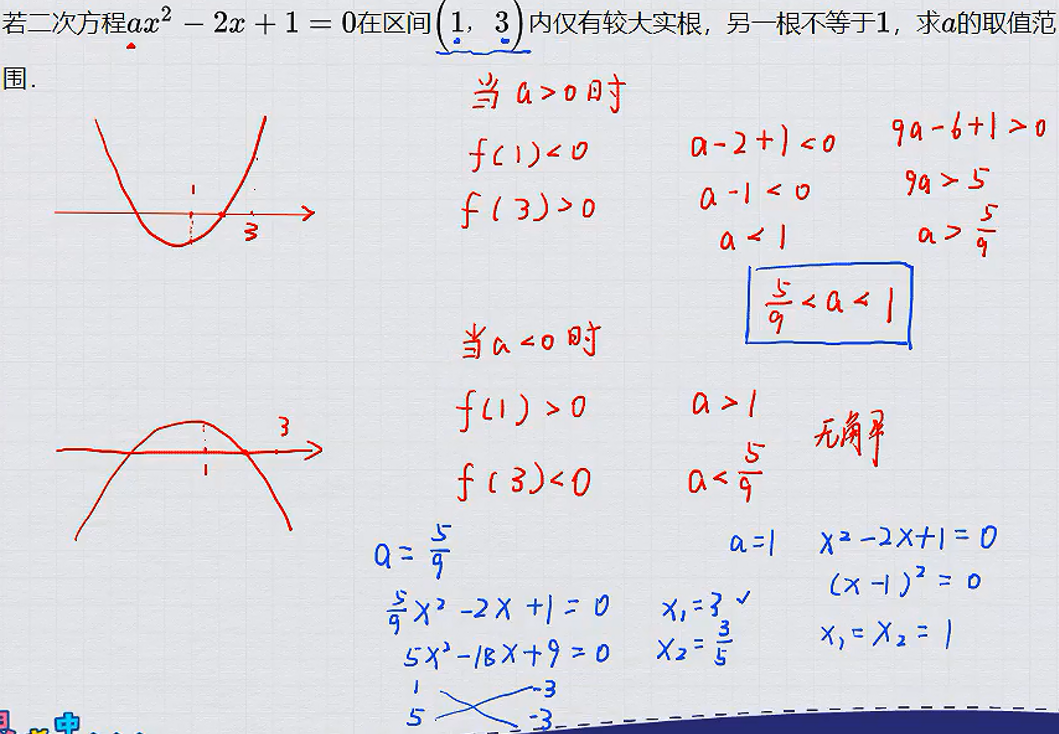 若二次方程ax²－2x＋1＝0在区间(1，3)内仅有较大实根，另一根不等于1，求a的取值范
围．
当 a>0 时
f(1)<0
f(3)>0
a-2+1<0
a-1<0
a<1
9a-6+1>0
9a>5
a>5/9
5/9<a<1
1
3
当 a<0 时
f(1)>0
f(3)<0
a>1
a<5/9
无解
3
1
a=5/9
5/9x²-2x+1=0
5x²-18x+9=0
1 -3
5 -3
x₁=3 ✓
x₂=3/5
a=1
x²-2x+1=0
(x-1)²=0
x₁=x₂=1
中